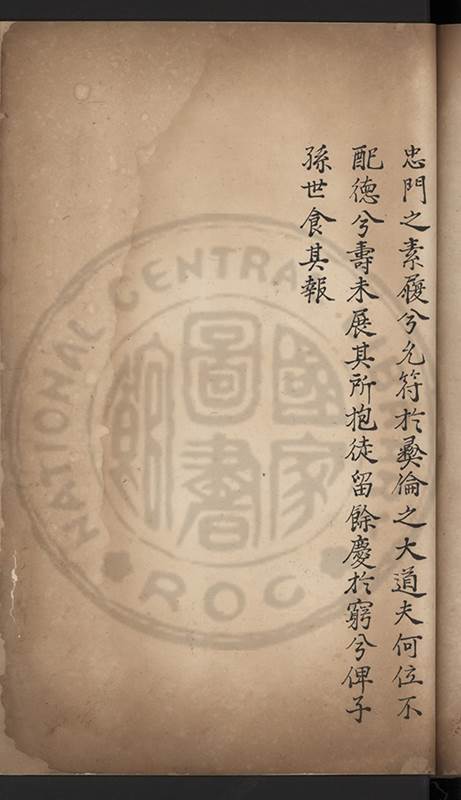 忠門之素履兮允符於彝倫之大道夫何位不
配德兮壽未展其所抱徒留餘慶於窮兮俾子
孫世食其報
國家
圖書
館
NATIONAL CENTRAL
ROC